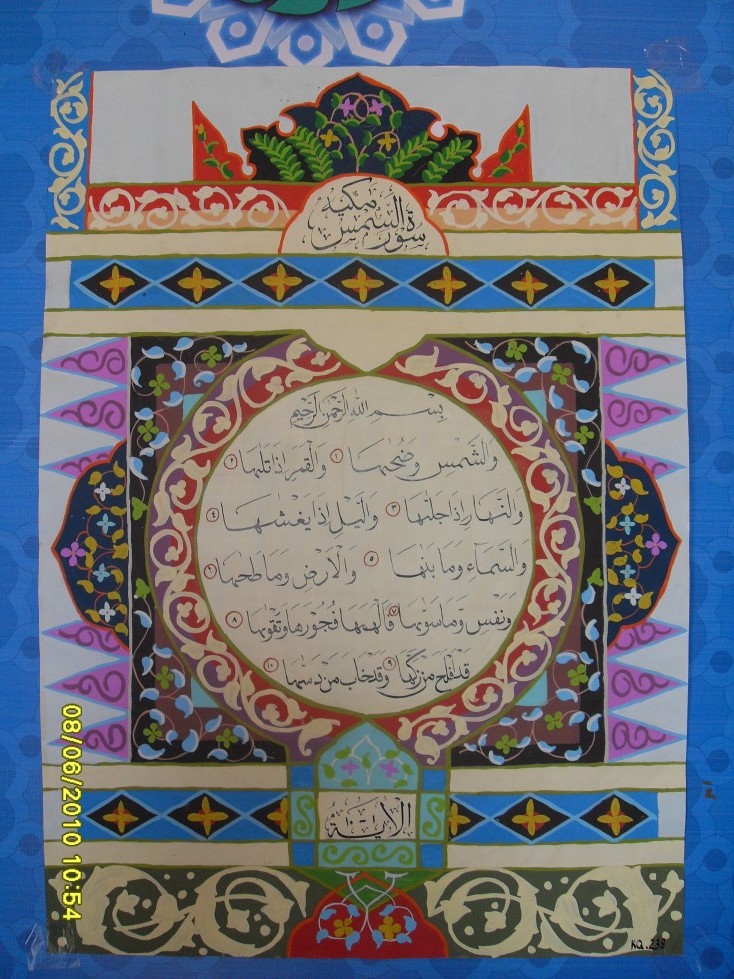 سورة الشمس مكيه
بِسْمِ اللهِ الرَّحْمٰنِ الرَّحِيْمِ
وَالشَّمْسِ وَضُحٰىهَا ١ وَالْقَمَرِ اِذَا تَلٰىهَا ٢
وَالنَّهَارِ اِذَا جَلّٰىهَا ٣ وَالَّيْلِ اِذَا يَغْشٰىهَا ٤
وَالسَّمَاءِ وَمَا بَنٰىهَا ٥ وَالْاَرْضِ وَمَا طَحٰىهَا ٦
وَنَفْسٍ وَّمَا سَوّٰىهَا ٧ فَاَلْهَمَهَا فُجُوْرَهَا وَتَقْوٰىهَا ٨
قَدْ اَفْلَحَ مَنْ زَكّٰىهَا ٩ وَقَدْ خَابَ مَنْ دَسّٰىهَا ١٠
الاية ١-١٠
KQ.238
08/06/2010 10:54